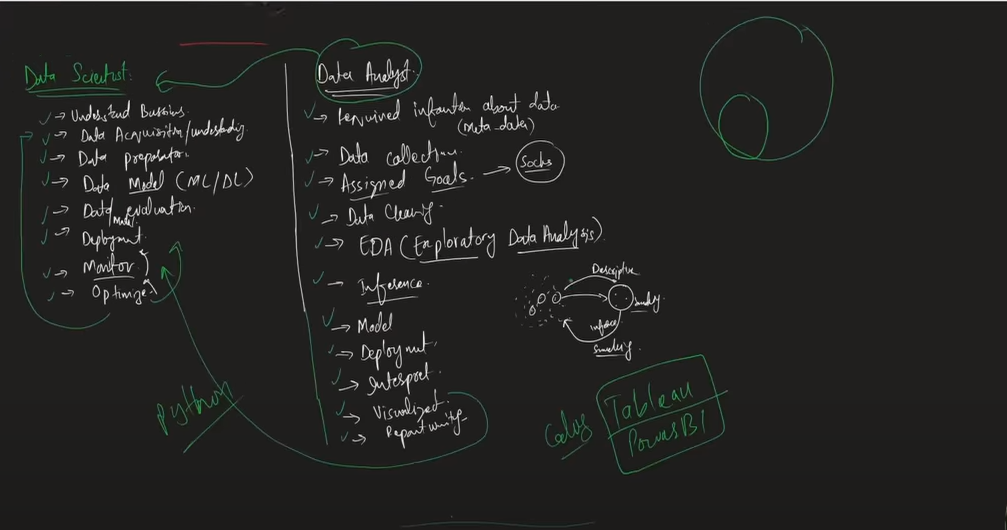 Data Scientist:
→ Understand Bussines.
→ Data Acquisition/understanding.
→ Data preparation.
→ Data Model (ML/DL)
→ Data evaluation.
Model
→ Deployment
→ Monitor
→ Optimize
Python
Data Analyst.
→ Required infomation about data
(meta-data)
→ Data collection.
→ Assigned Goals. →
→ Data Cleaning.
→ EDA (Exploratory Data Analysis).
→ Inference.
→ Model
→ Deployment.
→ Interpret.
→ Visualized.
→ Report writing
Descriptive
Tableau
PowerBI